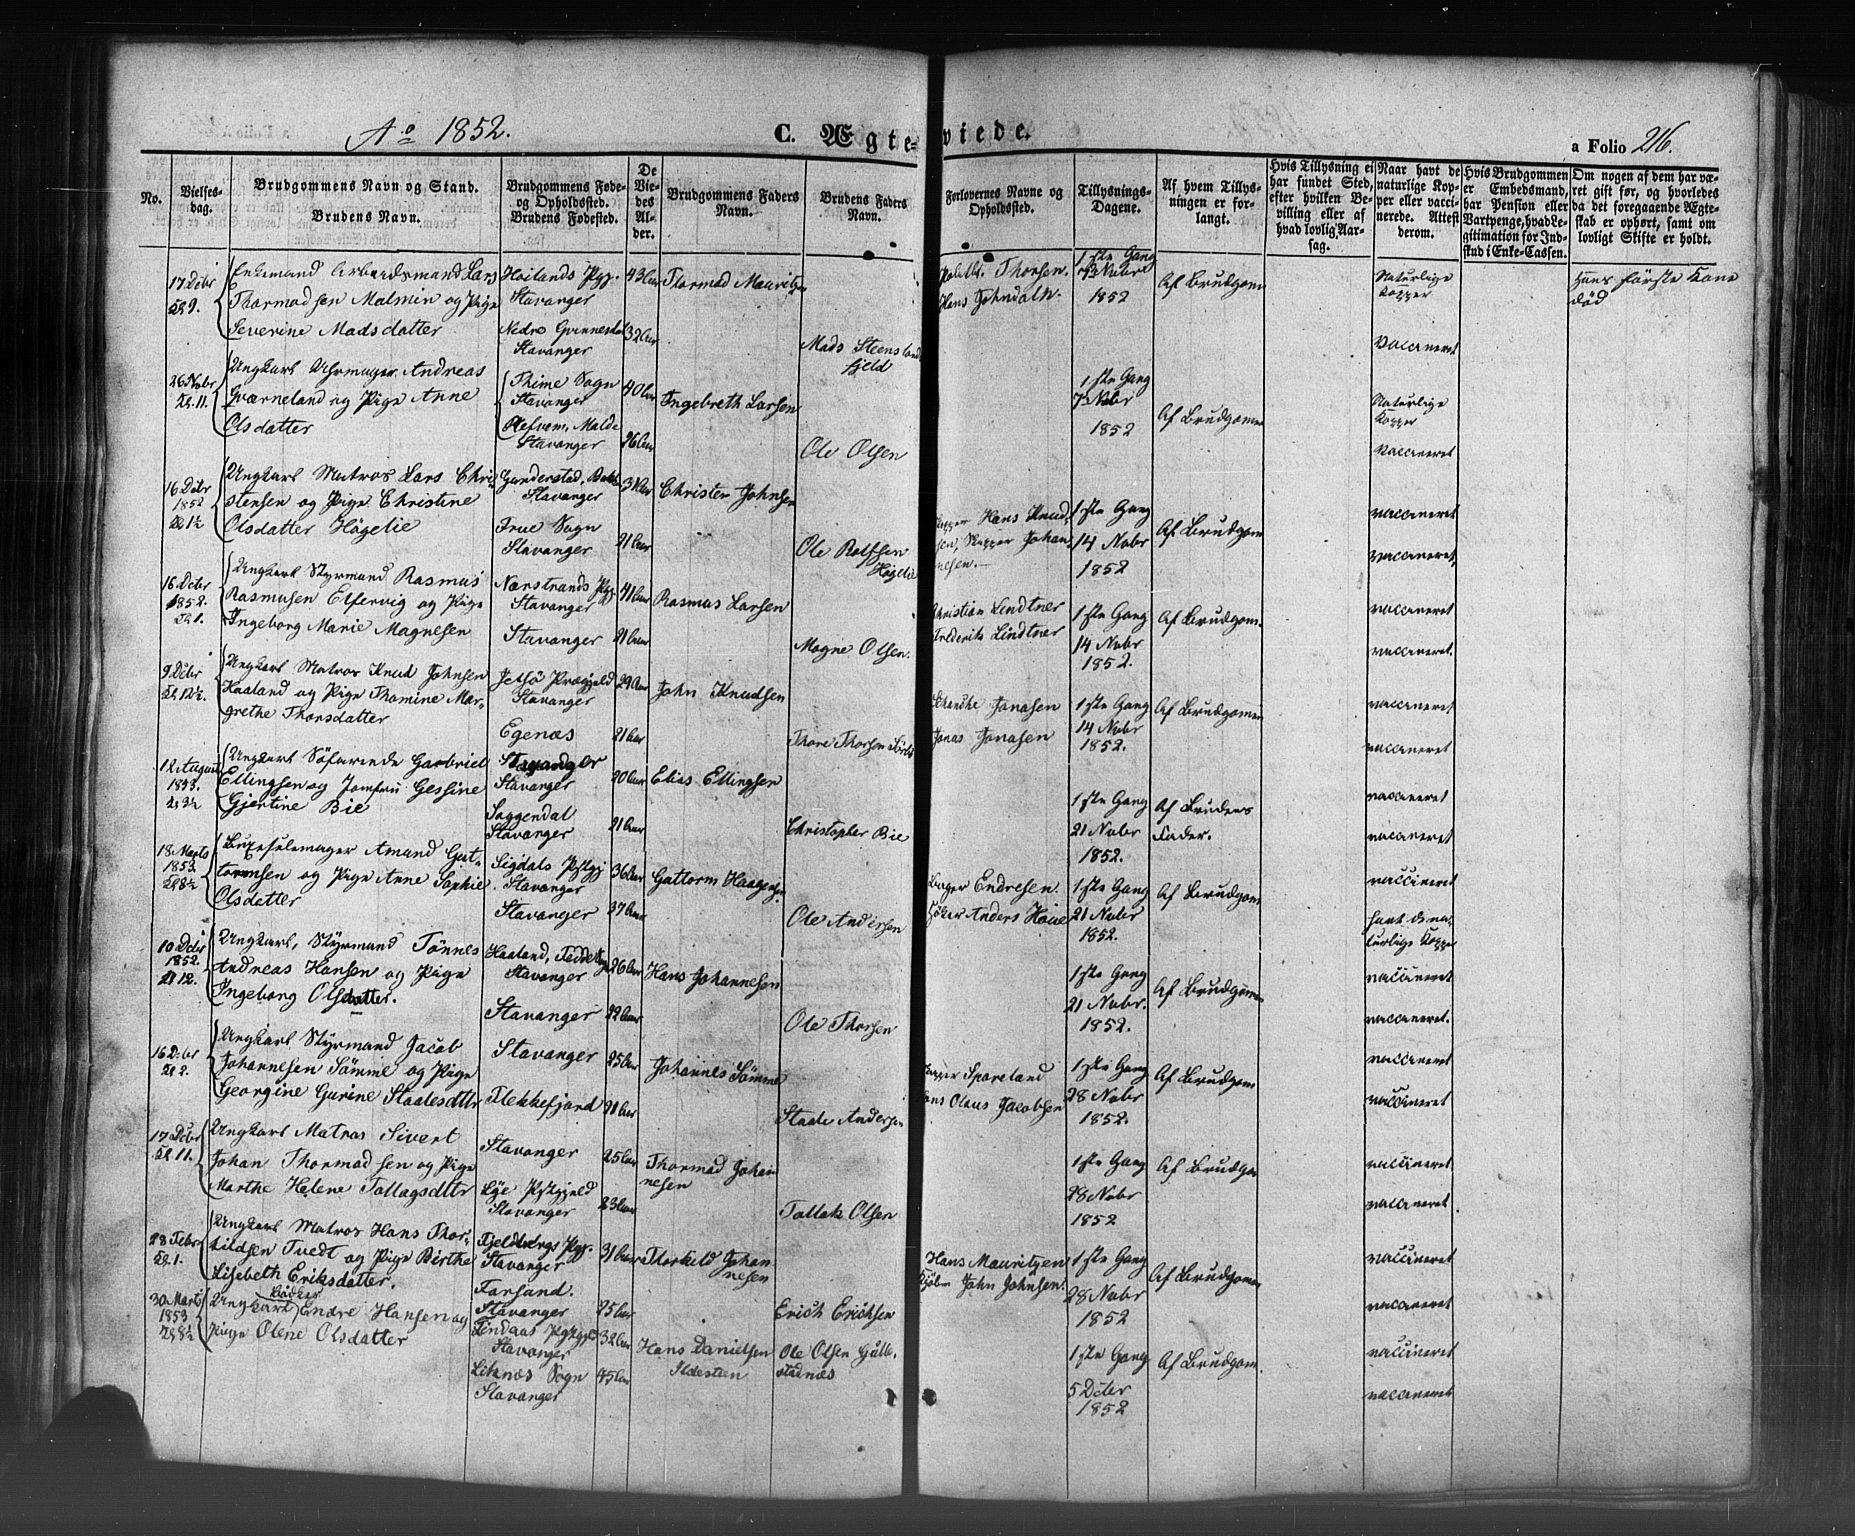 Aº 1852.
C. Ægte-
viede.
a Folio 216.
No.
Vielses-
dag.
Brudgommens Navn og Stand.
Brudens Navn.
Brudgommens Føde-
og Opholdssted.
Brudens Fødested.
De
Vie-
des
Al-
der.
Brudgommens Faders
Navn.
Brudens Faders
Navn.
Forlovernes Navne og
Opholdssted.
Tillysnings-
Dagene.
Af hvem Tillys-
ningen er for-
langt.
Hvis Tillysning ei
har fundet Sted,
efter hvilken Be-
villing eller af
hvad lovlig Aar-
sag.
Naar havt de
naturlige Kop-
per eller vacci-
nerede. Attest
derom.
Hvis Brudgommen
er Embedsmand,
har Pension eller
Vartpenge, hvad Le-
gitimation for Ind-
skud i Enke-Cassen.
Om nogen af dem har væ-
ret gift før, og hvorledes
da det foregaaende Ægte-
skab er ophørt, samt om
lovligt Skifte er holdt.
17 Dcbr
Kl 9.
Enkemand Arbeidsmand Lars
Thormodsen Malmin og Pige
Severine Madsdatter
Høilands Pgj.
Stavanger
Nedre
Stavanger
43 Aar
32 Aar
Thormod Mauritzen
Mads Steensland
fjeld
Thorsen
Hans
1ste Gang
Nobr
1852
Af Brudgom
Naturlige
Kopper
Vaccineret
Hans første Kone
død
26 Nobr
Kl. 11.
Ungkarl Uhrmager Andreas
Qværneland og Pige Anne
Olsdatter
Thime Sogn
Stavanger
Malde
Stavanger
40 Aar
26 Aar
Ingebreth Larsen
Ole Olsen
1ste Gang
7 Nobr
1852
Af Brudgomen
Naturlige
Kopper
Vaccineret
16 Dcbr
1852
Kl 1½
Ungkarl Matros Lars Chri-
stensen og Pige Christine
Olsdatter Høgelie
Gunderstad,
Stavanger
True Sogn
Stavanger
21 Aar
Christen Johnsen
Ole Rolfsen
Høgelie
Hans Knud-
sen, Johan-
nesen.
1ste Gang
14 Nobr
1852
Af Brudgom
vaccineret
vaccineret
16 Dcbr
1852.
Kl 1.
Ungkarl Styrmand Rasmus
Rasmusen Elfervig og Pige
Ingeborg Marie Magnesen
Nærstrands Pgj
Stavanger
Stavanger
41 Aar
21 Aar
Rasmus Larsen
Magne Olsen.
Christian Lindtner
Frederik Lindtner
1ste Gang
14 Nobr
1852.
Af Brudgom.
vaccineret
vaccineret.
9 Dcbr
Kl. 12½.
Ungkarl Matros Knud Johnsen
Haaland og Pige Thomine Mar-
grethe Thorsdatter
Jelsø PræGjeld
Stavanger
Egenæs
29 Aar
21 Aar
John Knudsen
Thore Thorsen
Schancke Jonasen
Jonas Jonasen
1ste Gang
14 Nobr
1852.
Af Brudgomen
vaccineret
vaccineret
12 August
1853.
Kl 3½
Ungkarl Søfarende Gabriel
Ellingsen og Jomfru Gessine
Gjertine Bie
Stavanger
Stavanger
Soggendal
Stavanger
20 Aar
21 Aar
Elias Ellingsen
Christopher Bie
1ste Gang
21 Nobr
1852.
Af Brudens
Fader.
vaccineret
vaccineret
18 Marts
1853.
Kl 8½
Amund Gut-
tormsen og Pige Anne Sophie
Olsdatter
Sigdals Pstgj
Stavanger
Stavanger
36 Aar
37 Aar
Guttorm Haagensen.
Ole Andersen
Bager Endresen.
Anders Høie
1ste Gang
21 Nobr
1852.
Af Brudgom
vaccineret
havt de na-
turlige Kopper
10 Dcbr
1852.
Kl 12.
Ungkarl, Styrmand Tønnes
Andreas Hansen og Pige
Ingeborg Olsdatter.
Haaland,
Stavanger
Stavanger
26 Aar
22 Aar
Hans Johannesen
Ole Thorsen
1ste Gang
21 Nobr.
1852.
Af Brudgomen
vaccineret
vaccineret.
16 Dcbr
Kl 2.
Ungkarl Styrmand Jacob
Johannesen Sømme og Pige
Georgine Gurine Staalesdttr
Stavanger
Flekkefjord
25 Aar
21 Aar
Johannes Sømme
Staale Andersen
Spareland
Olaus Jacobsen
1ste Gang
28 Nobr
1852.
Af Brudgom
vaccineret
vaccineret
17 Dcbr
Kl. 11.
Ungkarl Matros Sivert
Johan Thormodsen og Pige
Marthe Helene Tollagsdttr
Stavanger
Lye Pstgjeld
Stavanger
25 Aar
23 Aar
Thormod Johan
nesen
Tollak Olsen
1ste Gang
28 Nobr
1852
Af Brudgom
vaccineret.
vaccineret
28 Febr
Kl. 1.
Ungkarl Matros Hans Thor-
kildsen Tvedt og Pige Birthe
Lisebeth Eriksdatter.
Fjeldbergs Pgj.
Stavanger
Forsand.
Stavanger
31 Aar
25 Aar
Thorkild Johan
nesen
Erich Erichsen
Hans Mauritzen
John Johnsen.
1ste Gang
28 Nobr
1852
Af Brudgomen
vaccineret
vaccineret
30 Marts
1853
Kl 8½
Bødker
Ungkarl Endre Hansen og
Pige Olene Olsdatter
Findaas Pstgj
Stavanger
Liknæs Sogn
Stavanger
32 Aar
45 Aar
Hans Danielsen
Ole Olsen Gulle-
stadnæs
1ste Gang
5 Dcbr
1852
Af Brudgom.
vaccineret
vaccineret